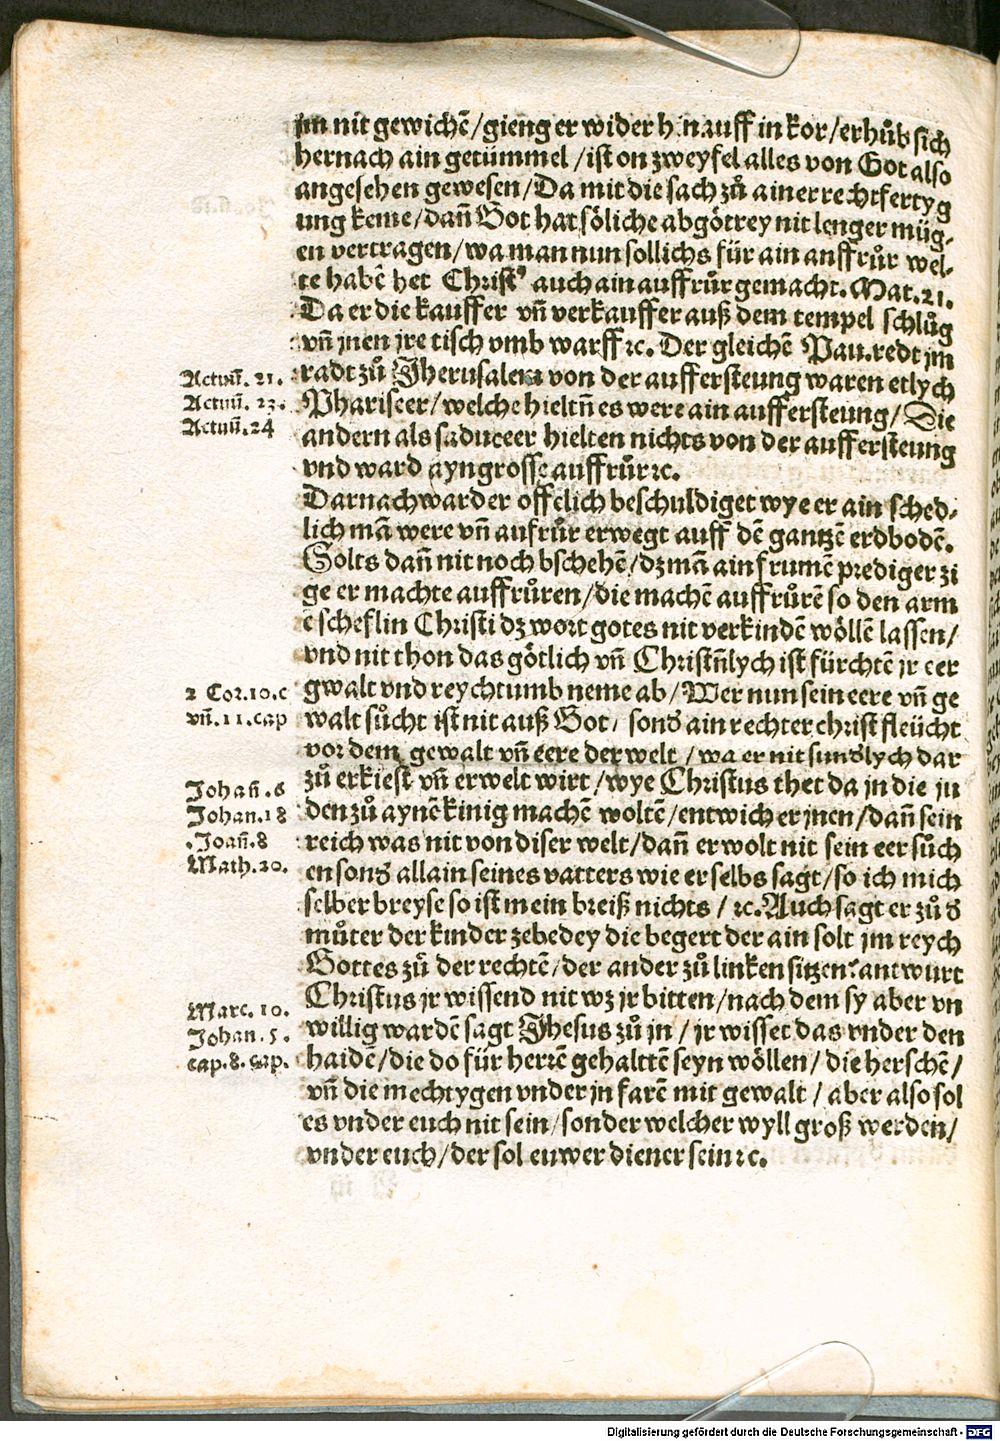 jm nit gewichē/gieng er wider hinauff in kor/erhůb sich
hernach ain getümmel /ist on zweyfel alles von Got also
angesehen gewesen/Da mit die sach zů ainer rechtfertyg
ung keme/dañ Got hat söliche abgötrey nit lenger müg-
en vertragen/wa man nun sollichs für ain anffrůr wel-
te habē het Christꝰ auch ain auffrůr gemacht. Mat. 21.
Da er die kauffer vñ verkauffer auß dem tempel schlůg
vñ jnen jre tisch vmb warff ꝛc. Der gleichē Pau. redt jm
Actuū. 21. radt zů Jherusalem von der auffersteung waren etlych
Actuū. 23. Phariseer/welche hieltñ es were ain aufferstung/Die
Actuū. 24 andern als saduceer hielten nichts von der aufferstung
vnd ward ayn grosse auffrůr ꝛc.
Darnach ward er offēlich beschuldiget wye er ain sched-
lich mā were vñ aufrůr erwegt auff dē gantzē erdbodē.
Solts dañ nit noch bschehē/dz mā ain frumē prediger zi
ge er machte auffrůren/die machē auffrůrē so den arm
ē scheflin Christi dz wort gotes nit verkindē wöllē lassen/
vnd nit thon das götlich vñ Christñlych ist fürchtē jr eer
2 Cor. 10. c gwalt vnd reychtumb neme ab/Wer nun sein eere vñ ge
vñ. 11. cap walt sůcht ist nit auß Got/ sonđ ain rechter christ fleücht
vor dem gewalt vñ eere der welt /wa er nit sunđlych dar
Johañ. 6 zů erkiest vñ erwelt wirt/wye Christus thet da jn die ju
Johan. 18 den zů aynē kinig machē woltē/entwich er jnen/dañ sein
Joañ. 8 reich was nit von diser welt/dañ er wolt nit sein eer sůch
Math. 20. en sonđ allain seines vatters wie er selbs sagt/so ich mich
selber breyse so ist mein breiß nichts / ꝛc. Auch sagt er zů đ
můter der kinder zebedey die begert der ain solt jm reych
Gottes zů der rechtē/der ander zů linken sitzen? antwurt
Marc. 10. Christus jr wissend nit wz jr bitten/nach dem sy aber vn
Johan. 5. willig wardē sagt Jhesus zů jn / jr wisset das vnder den
cap. 8. cap. haidē/die do für herrē gehalttē seyn wöllen/ die herschē/
vñ die mechtygen vnder jn farē mit gewalt / aber also sol
es vnder euch nit sein/sonder welcher wyll groß werden/
vnder euch/der sol euwer diener sein ꝛc.
Digitalisierung gefördert durch die Deutsche Forschungsgemeinschaft - DFG